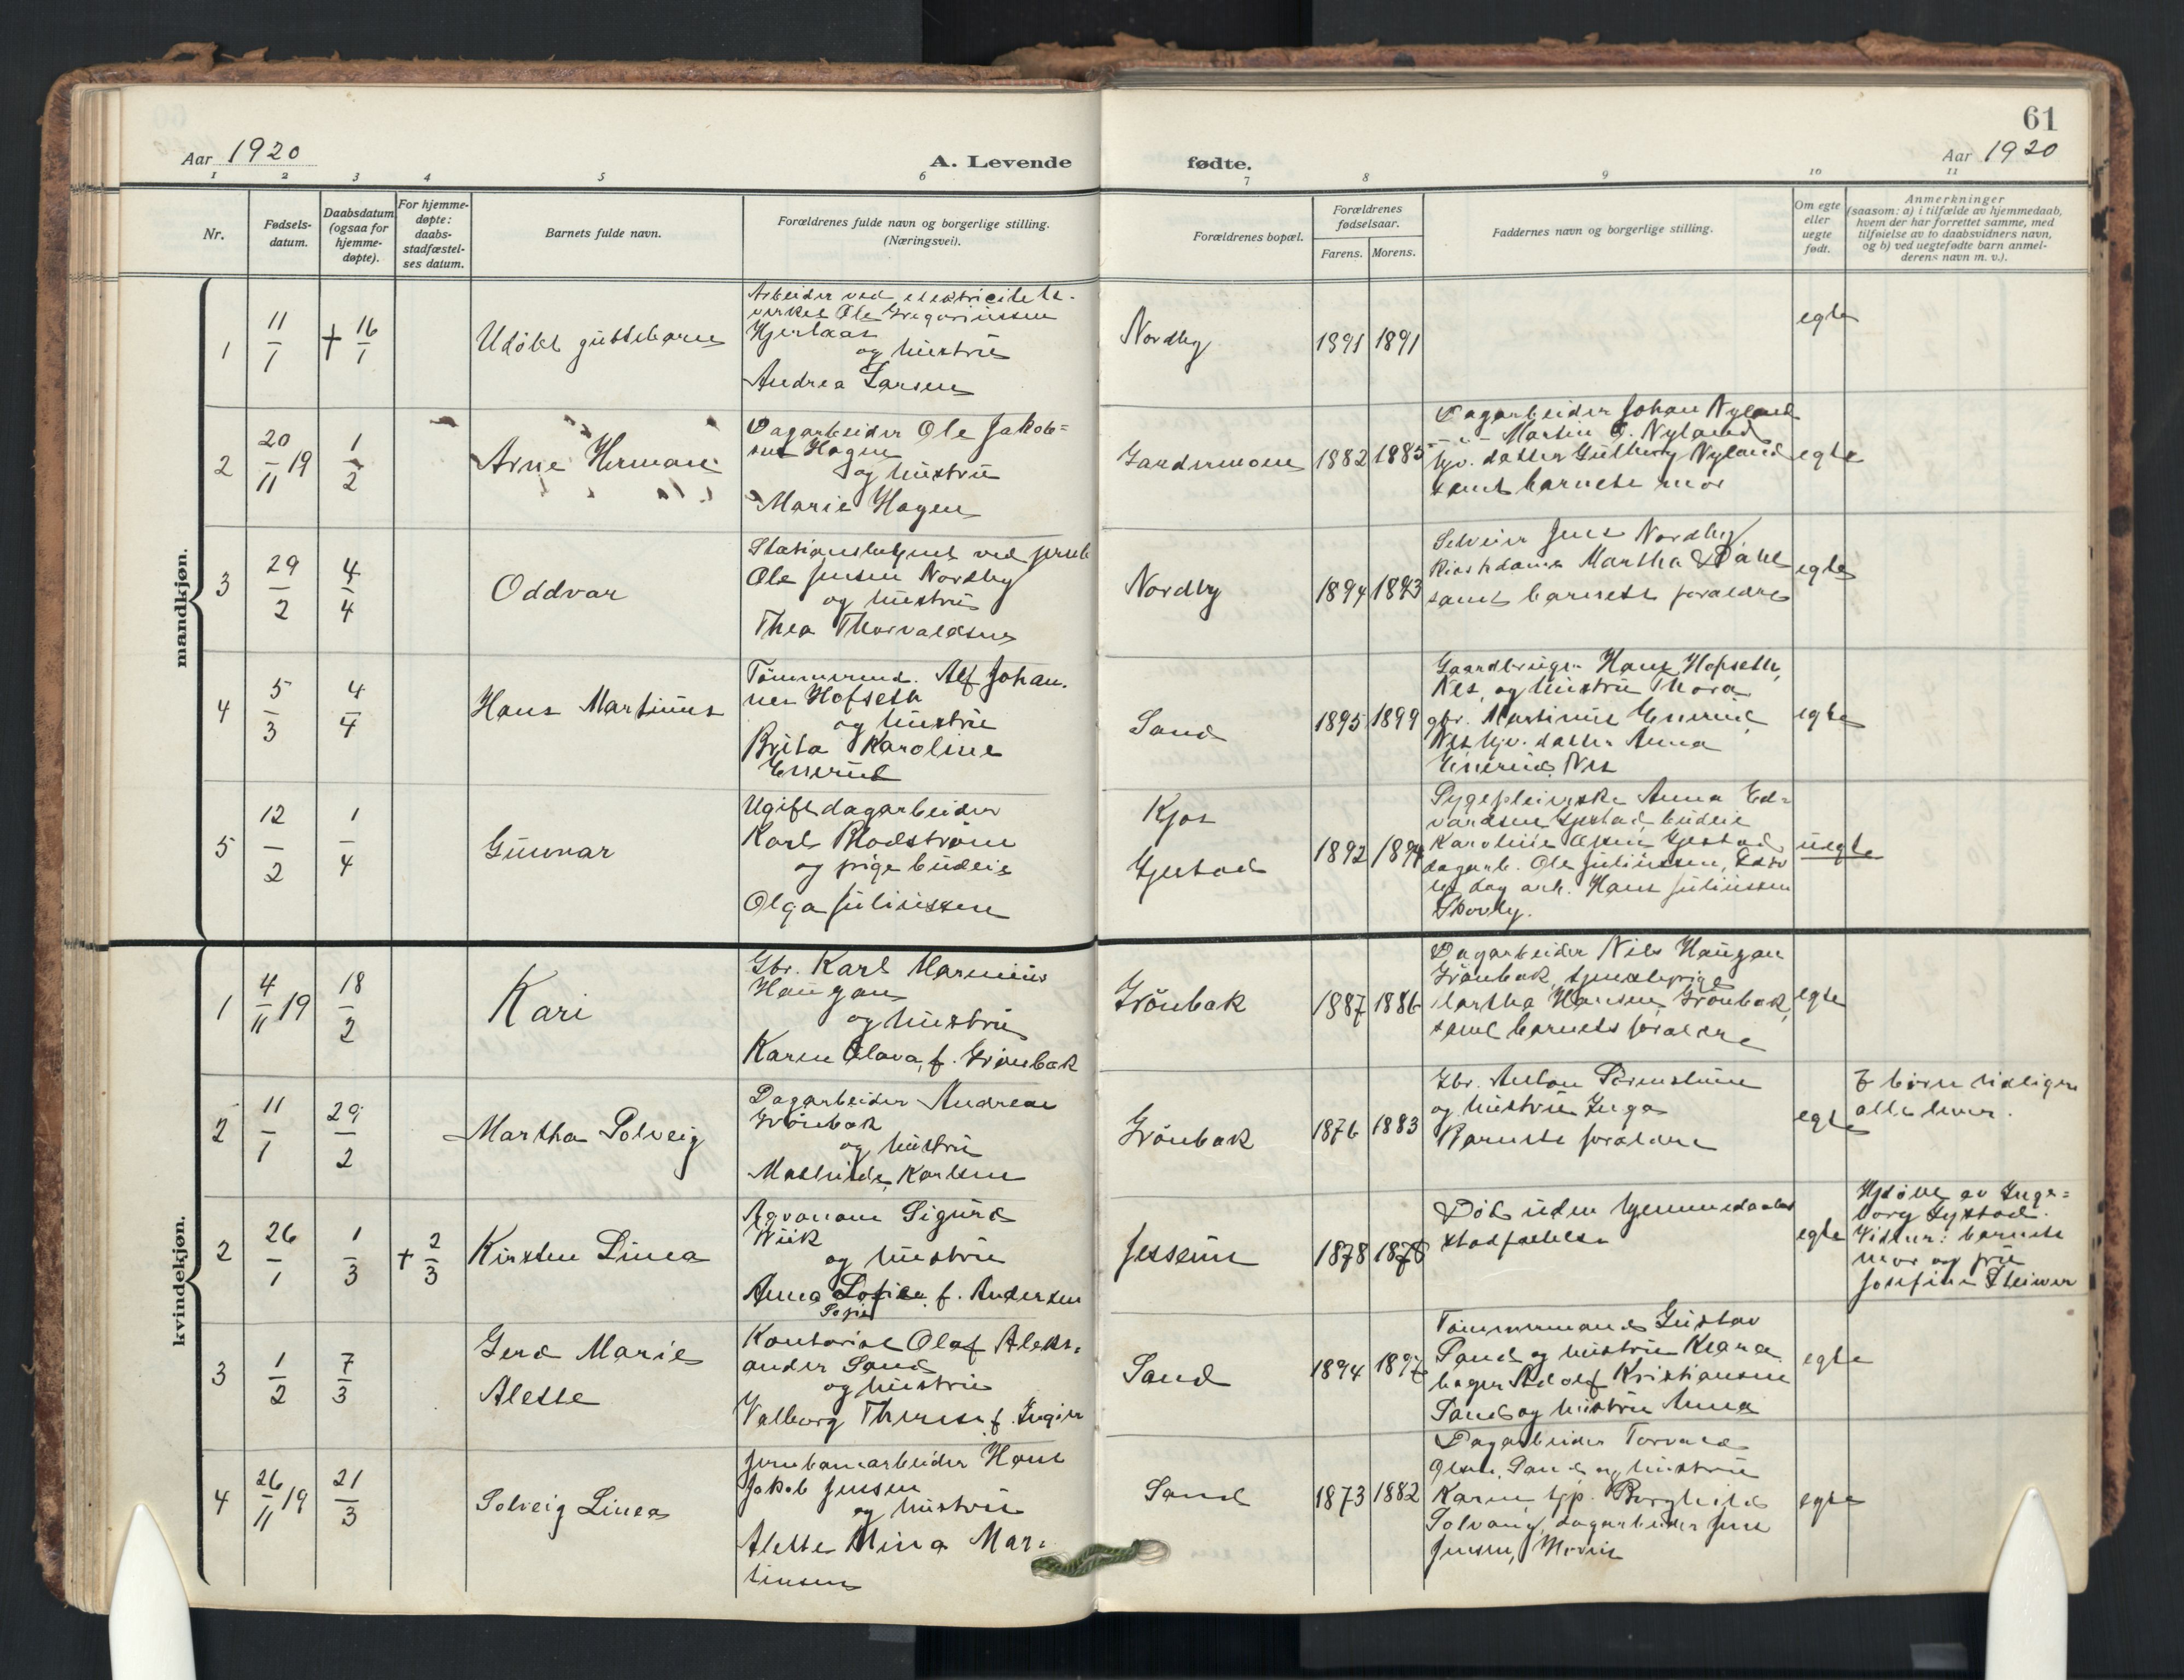 61
Aar 1920
A. Levende
fødte.
Aar 1920
1 2 3 4 5 6 7 8 9 10 11
Nr.
Fødsels-
datum.
Daabsdatum
(ogsaa for
hjemme-
døpte).
For hjemme-
døpte:
daabs-
stadfæstel-
ses datum.
Barnets fulde navn.
Forældrenes fulde navn og borgerlige stilling.
(Næringsvei).
Forældrenes bopæl.
Forældrenes
fødselsaar.
Farens. Morens.
Faddernes navn og borgerlige stilling.
Om egte
eller
uegte
født.
Anmerkninger
(saasom: a) i tilfælde av hjemmedaab,
hvem der har forrettet samme, med
tilføielse av to daabsvidners navn,
og b) ved uegtefødte barn anmel-
derens navn m. v.).
mandkjøn.
1
11/1
† 16/1
Udøbt guttebarn
Arbeider ved elektricitets-
verket Ole Gregoriussen
og hustru
Andrea Larsen
Nordby
1891 1891
egte
2
20/11 19
1/2
Arne Herman
Dagarbeider Ole Jakob=
sen Hagen
og hustru
Marie Hagen
Gardermoen
1882 1885
Dagarbeider Johan Nyland
- " - Martin O. Nyland
hjv. datter Gudborg Nyland
samt barnets mor
egte
3
29/2
4/4
Oddvar
Stationsbetjent ved jernb
Ole Jensen Nordby
og hustru
Thea Thorvaldsen
Nordby
1894 1893
Selveier Jens Nordby
Martha Dahl
samt barnets foraldre
egte
4
5/3
4/4
Hans Martinus
Tømmermd. Alf Johan.
nes Hofseth
og hustru
Brita Karoline
Enerud
Sand
1895 1899
Gaardbruger Hans Hofseth,
Nes, og hustru Thora
gbr. Martinus Enerud
Nes hjv. datter Anna
Enerud, Nes
egte
5
12/2
1/4
Gunnar
Ugift dagarbeider
Karl Rhodström
og pige budeie
Olga Juliussen
Kjos
Gjestad
1892 1894
Sygepleierske Anna Ed=
vardsen Gjestad, budeie
Karoline Olsen Gjestad
dagarb. Ole Juliussen,
dag arb. Hans Juliussen
Skovly.
uegte
kvindekjøn.
1
4/11 19
18/2
Kari
Gbr. Karl Marinius
Haugan
og hustru
Karen Olava, f. Grønbak
Grönbak
1887 1886
Dagarbeider Nils Haugan
Grønbak, tjenestepige
Martha Hansen, Grønbak,
samt barnets foraldre
egte
2
11/1
29/2
Martha Solveig
Dagarbeider Andreas
Grönbak
og hustru
Mathilde Karlsen
Grönbak
1876 1883
Gbr. Anton
og hustru Inga
Barnets foraldre
egte
børn tidligere
alle lever.
2
26/1
1/3
† 2/3
Kirsten Linea
Agronom Sigurd
Wiik
og hustru
Anna f. Andersen
Sofie
Jessheim
1878 1878
Død uden hjemmedaabs
stadfæstelse
egte
Hjdøbt av Inge=
borg Gystad.
Vidner: barnets
mor og fru
Josefine Steiner
3
1/2
7/3
Gerd Marie
Alette
Kontorist Olaf Aleks=
ander Sand
og hustru
Valborg Therese f. Ingier
Sand
1894 1897
Tømmermand Gustav
Sand og hustru Klara
bager Adolf Kristiansen
Sand og hustru Anna
egte
4
26/11 19
21/3
Solveig Linea
Jernbanearbeider Hans
Jakob Jensen
og hustru
Alette Mina Mar=
tinsen
Sand
1873 1882
Dagarbeider Torvald
Olsen, Sand og hustru
Karen, tjp. Borghild
Solvang, dagarbeider Jens
Jensen,
egte